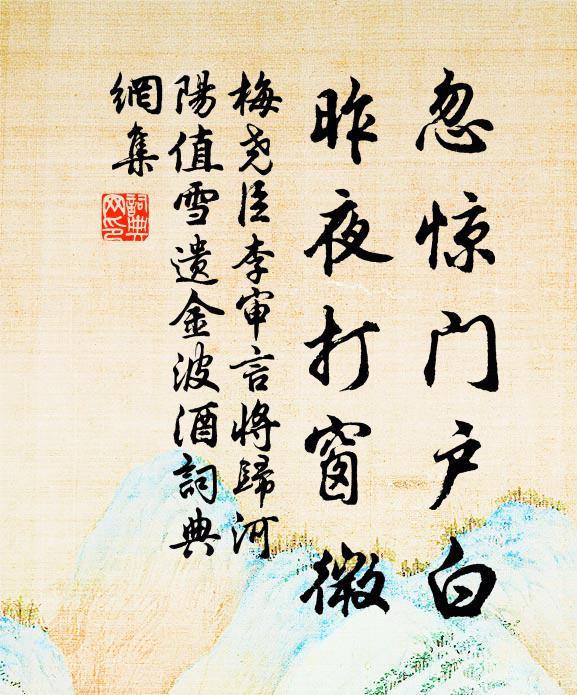 忽惊门户白
昨夜打窗微
梅尧臣李审言将歸河
陽值雪遗金波酒詞典
網集
詞典網印